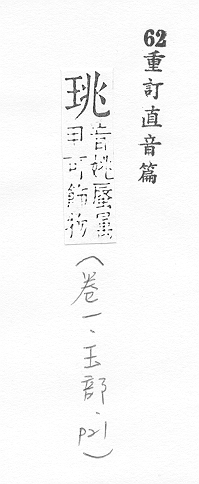 62重訂直音篇
珧音姚蜃屬
甲可飾物
(卷一、玉部、p21)